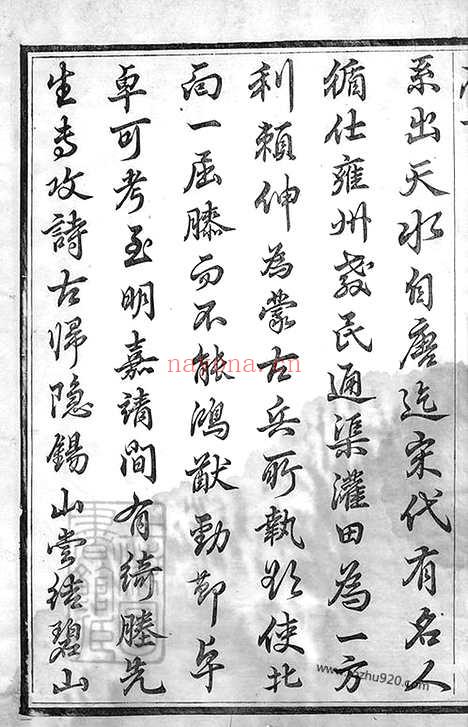 系出天水自唐迄宋代有名人
循仕雍州教民通渠灌田為一方
利賴伸為蒙古兵所執欲使北
向一屈膝而不能鴻猷勁節卓
卓可考至明嘉靖間有綺塍先
生專攻詩古歸隱錫山嘗結碧山
nayona.cn